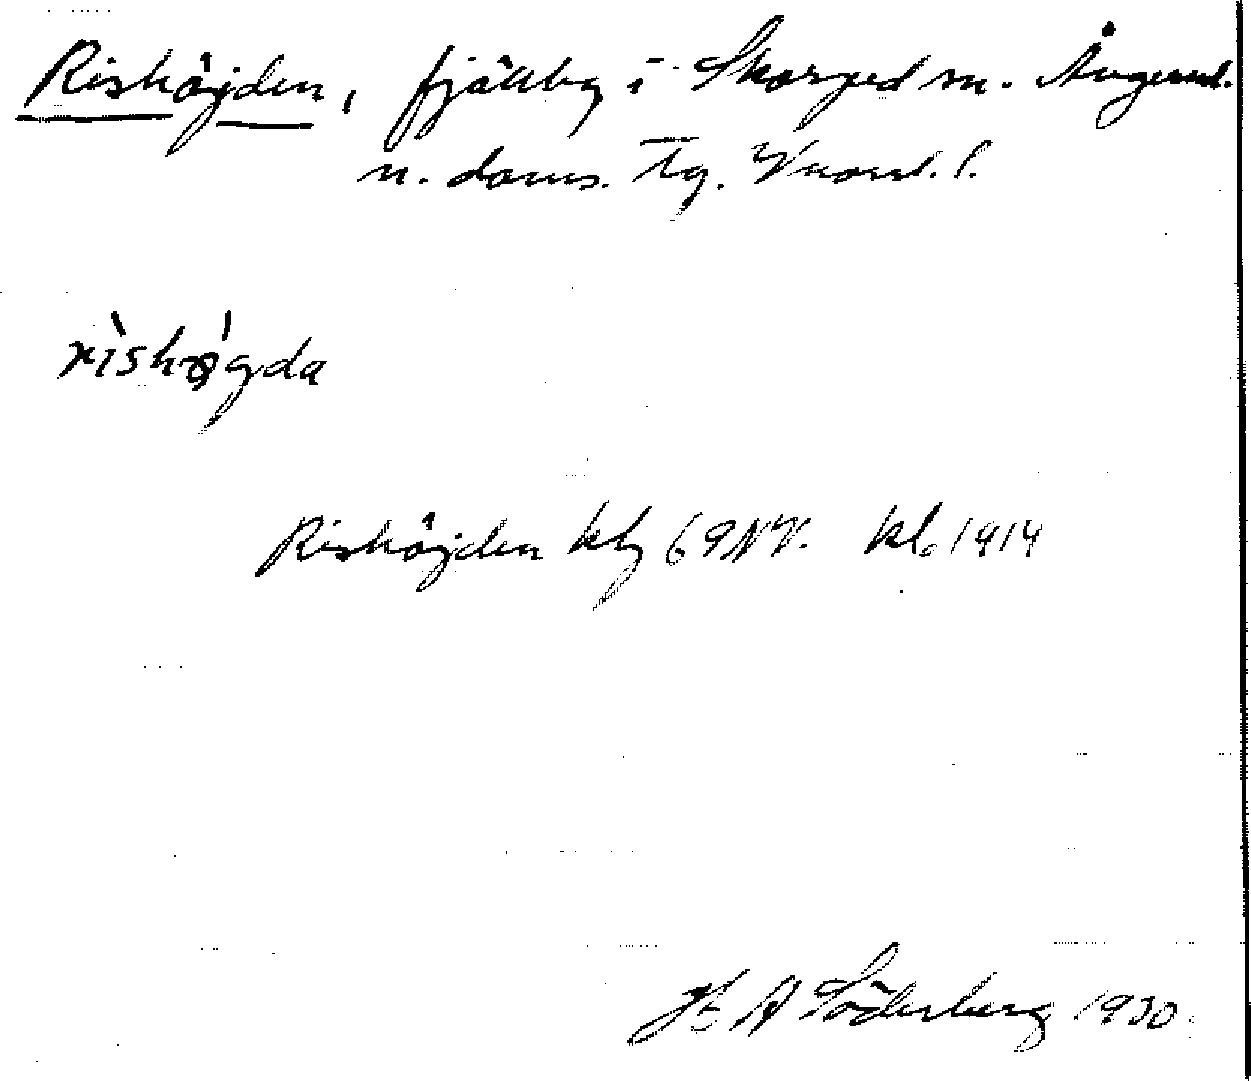 Rishöjden, fjällbg i Skorped sn. Ångerml.
n. doms. Tg. Vnorrl. l.
rìshǿgda
Rishöjden kbg 69 NV. kl. 1914
H A Söderberg 1930